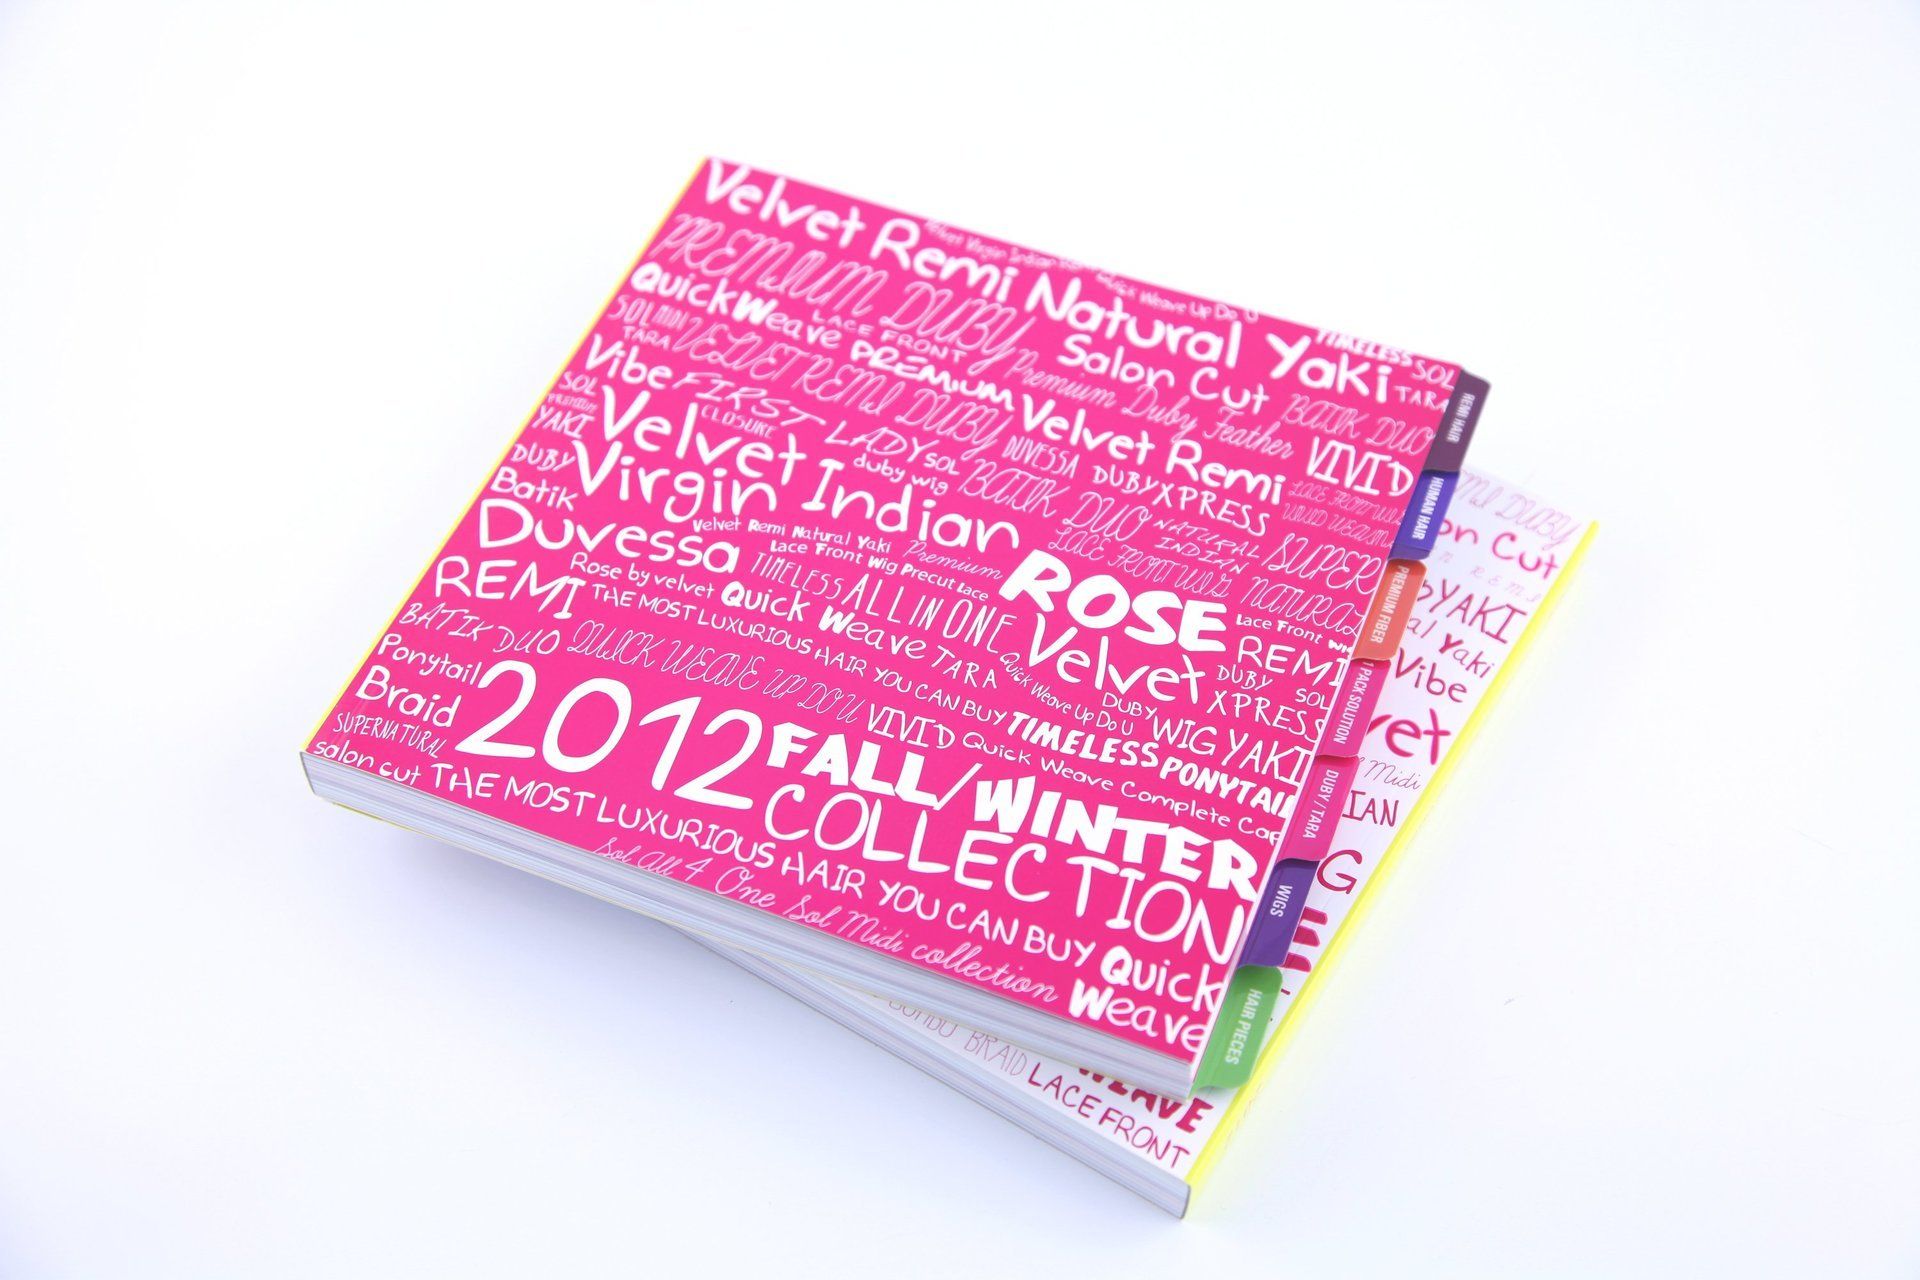 Velvet Remi Natural Yaki
Velvet Virgin Indian
Quick Weave Up Do U
TIMELESS SOL
PREMIUM DUBY
Salon Cut
TARA
QuickWeave
LACE FRONT
Premium Duby Feather
BATIK DUO
SOL MIDI
TARA
VELVET REMI DUBY
PREMIUM
Velvet Remi
VIVID
Vibe
FIRST LADY
SOL
DUVESSA
DUBYXPRESS
SOL
PREMIUM
YAKI
Velvet
CLOSURE
duby wig
BATIK DUO
NATURAL
INDIAN
SUPER
DUBY
Virgin Indian
LACE FRONT WIGS
NATURAL
Batik
Duvessa
Velvet Remi Natural Yaki
Premium
Lace Front Wig Precut Lace
ROSE
Lace Front
REMI
Rose by velvet
TIMELESS
ALL IN ONE
Velvet
REMI
THE MOST LUXURIOUS HAIR YOU CAN BUY
Quick Weave
TARA
Quick Weave Up Do U
DUBY
XPRESS
SOL
BATIK DUO
QUICK WEAVE UP DO U
VIVID
TIMELESS
DUBY
WIG
YAKI
Ponytail
Braid
2012
FALL/WINTER
COLLECTION
Quick Weave Complete Cap
PONYTAIL
SUPERNATURAL
salon cut
THE MOST LUXURIOUS HAIR YOU CAN BUY
Quick
Weave
Sol All 4 One Sol Midi collection
REMI HAIR
HUMAN HAIR
PREMIUM FIBER
1 PACK SOLUTION
DUBY / TARA
WIGS
HAIR PIECES
DUBY
Cut
YAKI
Yaki
Vibe
Midi
BRAID
WEAVE
LACE FRONT